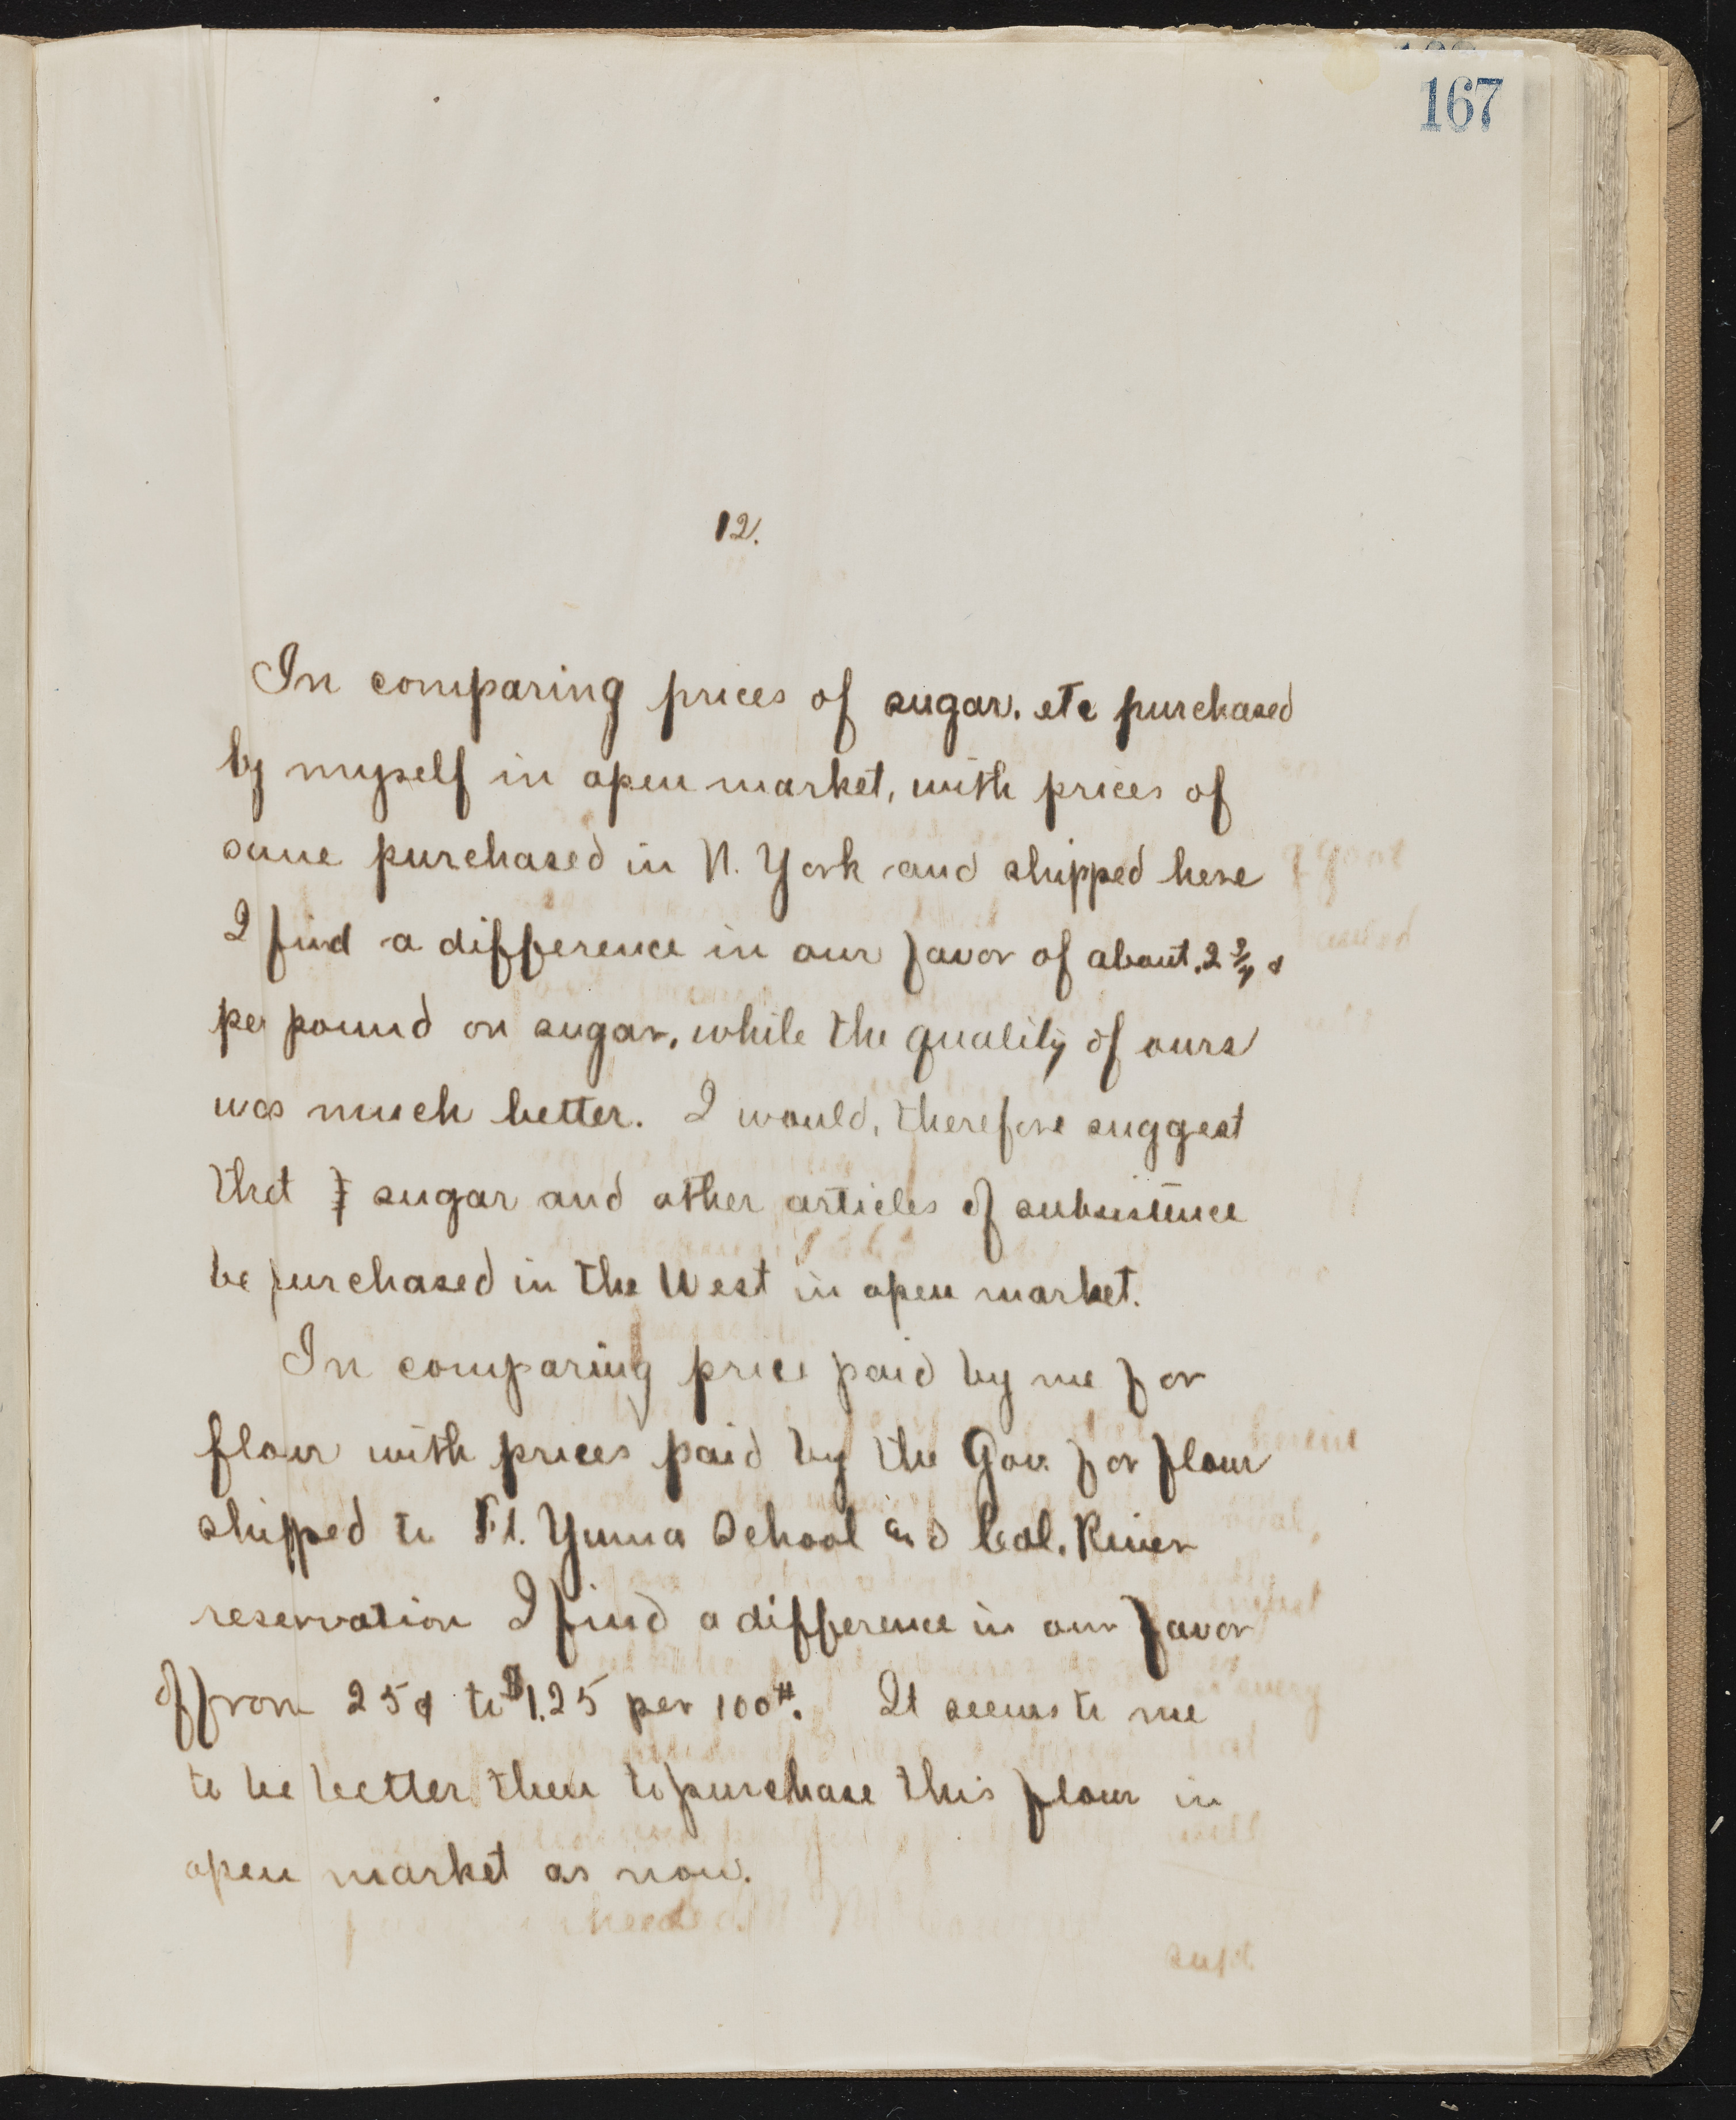 167
12.
In comparing prices of sugar. etc purchased
by myself in open market, with prices of
same purchased in N. York and shipped here
I find a difference in our favor of about .2 3/4 ¢
per pound on sugar, while the quality of ours
was much better. I would, therefore suggest
that sugar and other articles of subsistence
be purchased in the West in open market.
In comparing price paid by me for
flour with prices paid by the Gov. for flour
shipped to Ft. Yuma School and Col. River
reservation I find a difference in our favor
of from 25¢ to $1.25 per 100#. It seems to me
to be better then to purchase this flour in
open market as now.
Supt